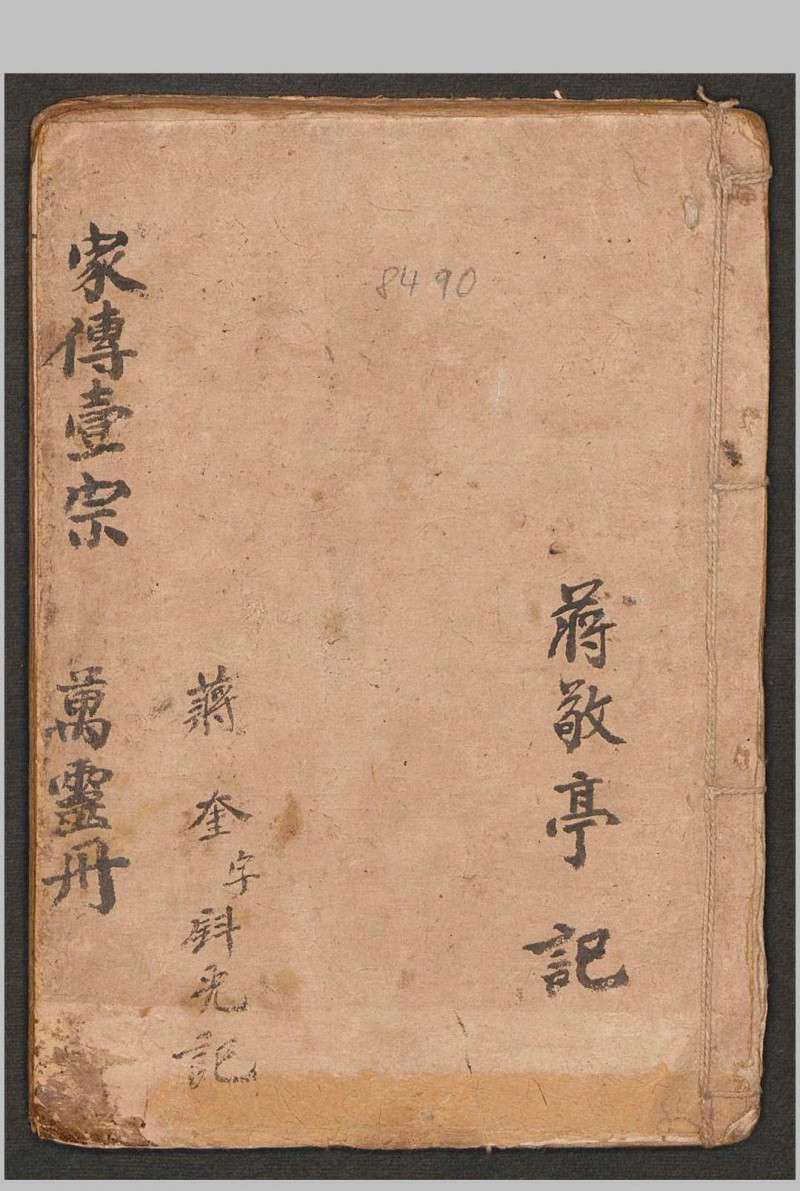 蔣敬亭 記
8490
蔣 奎 字 斟光 記
家傳壹宗 萬靈冊